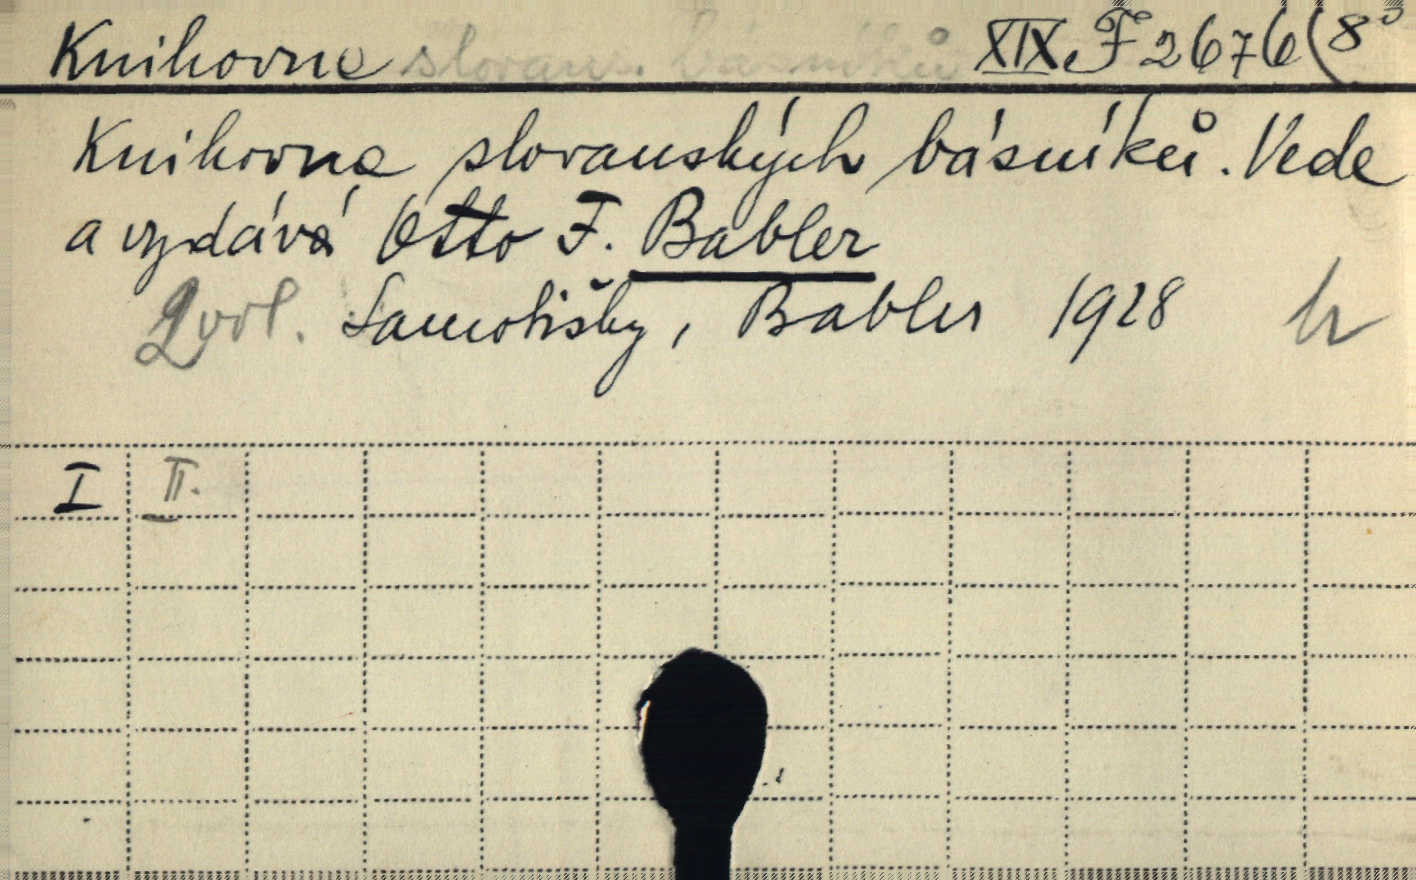 Knihovna slovans. básníků XIX F 2676 (8°
Knihovna slovanských básníků. Vede
a vydává Otto F. Babler
2 vol. Samotišky, Babler 1928
I II.